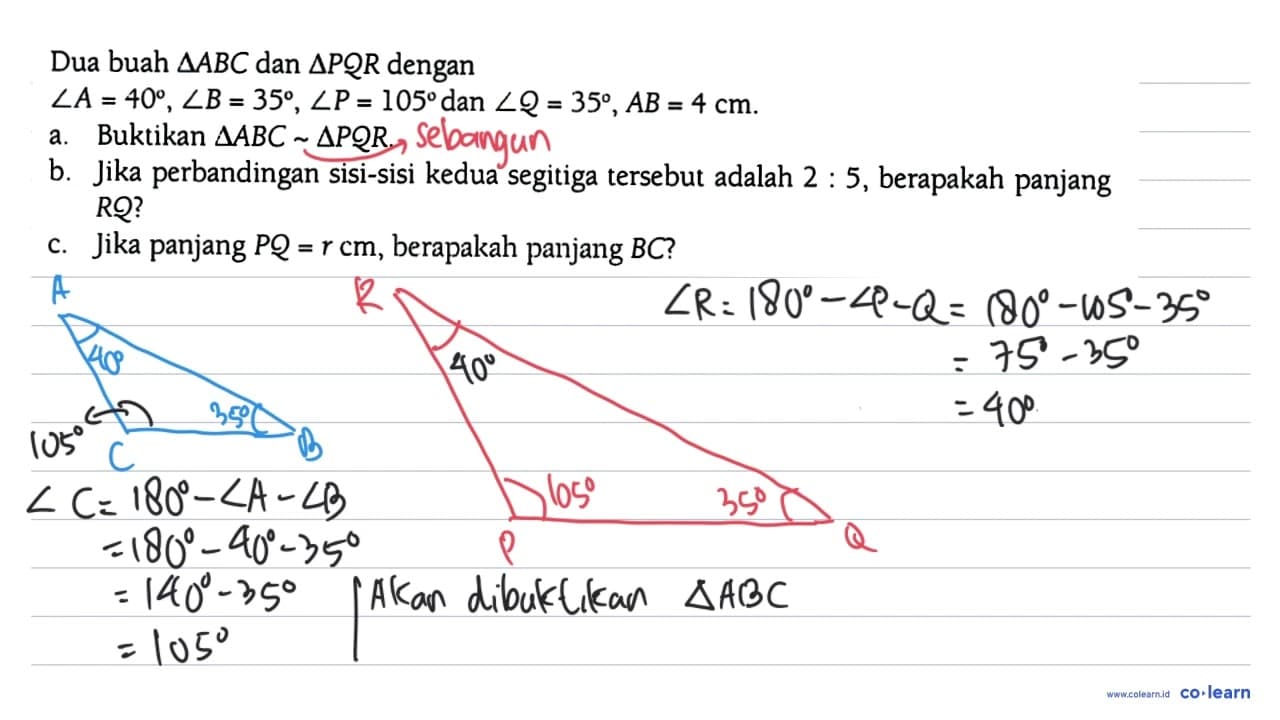 Dua buah ΔABC dan ΔPQR dengan
∠A = 40°, ∠B = 35°, ∠P = 105° dan ∠Q = 35°, AB = 4 cm.
a. Buktikan ΔABC ~ ΔPQR. → sebangun
b. Jika perbandingan sisi-sisi kedua segitiga tersebut adalah 2 : 5, berapakah panjang
RQ?
c. Jika panjang PQ = r cm, berapakah panjang BC?
A
R
∠R = 180° - ∠P - Q = 180° - 105° - 35°
40°
40°
= 75° - 35°
35°
= 40°
105°
C
B
105°
35°
∠C = 180° - ∠A - ∠B
P
Q
= 180° - 40° - 35°
= 140° - 35°
Akan dibuktikan ΔABC
= 105°
www.colearn.id co·learn